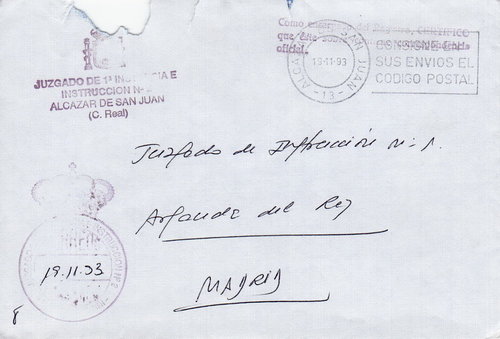 JUZGADO DE 1ª INSTANCIA E
INSTRUCCION N.º
ALCAZAR DE SAN JUAN
(C. Real)
Como encargado del Registro, CERTIFICO
que este sobre
oficial.
ALCAZAR SAN JUAN
19-11-93
-13-
CONSIGNE EN
SUS ENVIOS EL
CODIGO POSTAL
Juzgado de Instrucción N.º 1.
Arganda del Rey
MADRID
19.11.93
8